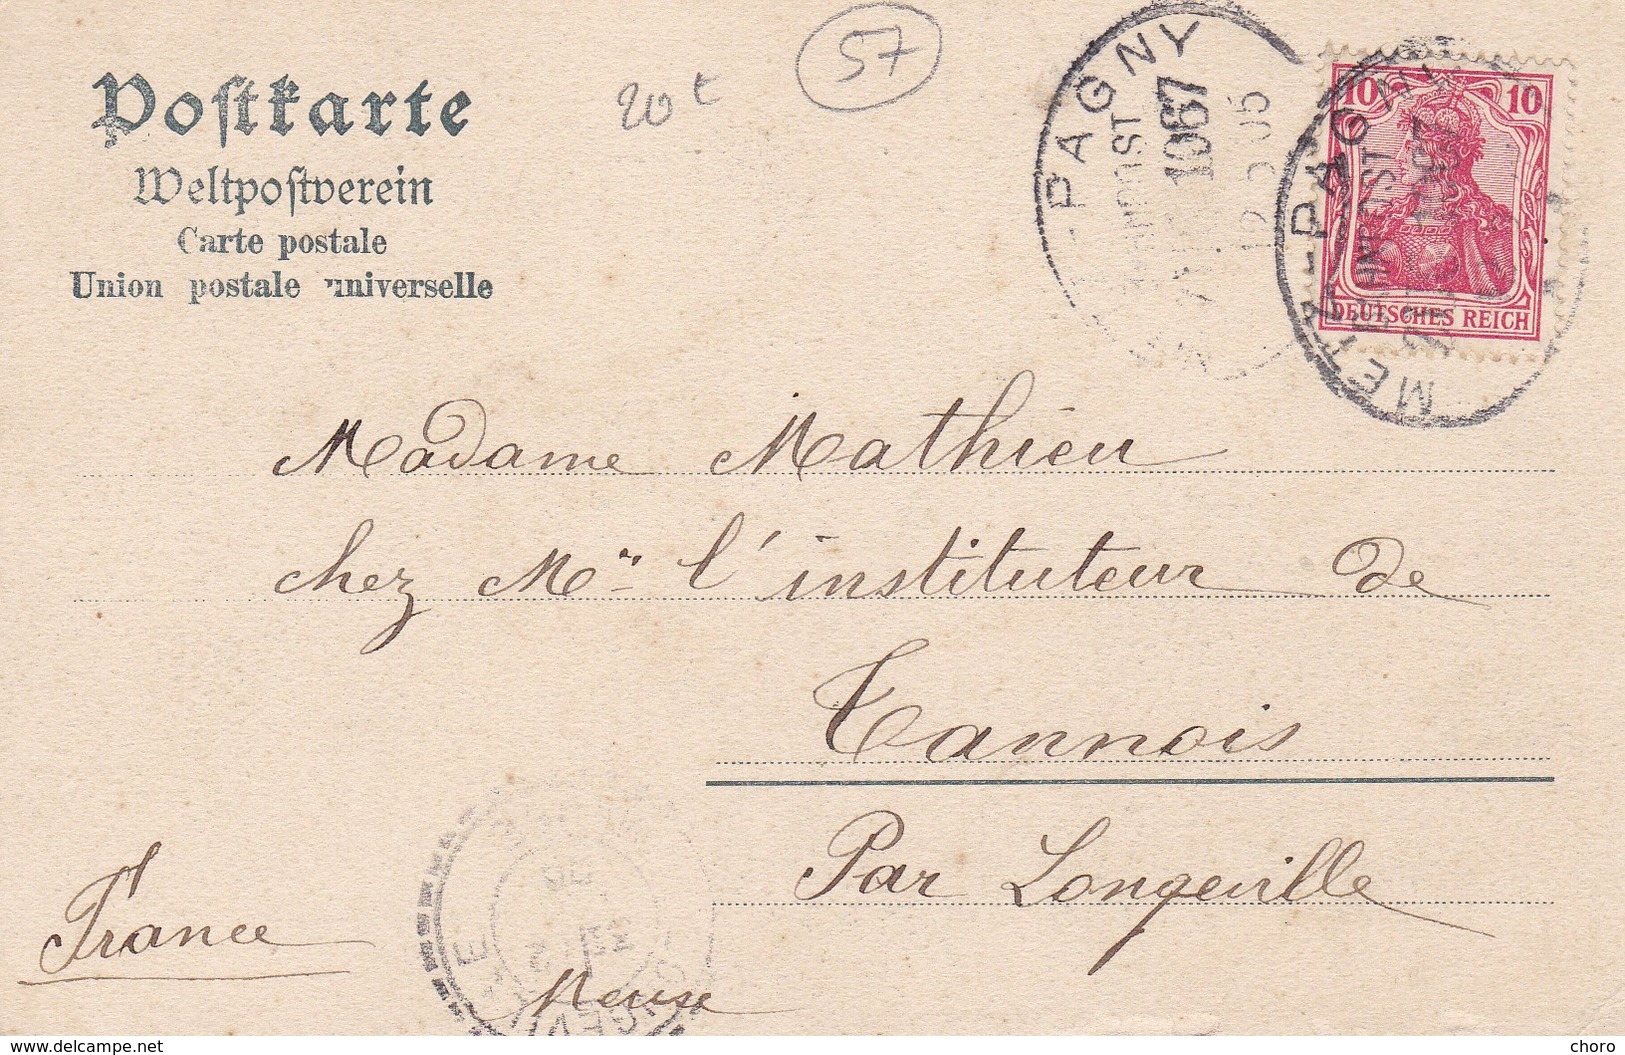 Postkarte
Weltpostverein
Carte postale
Union postale universelle
20 t
57
PAGNY
1067
10 10
DEUTSCHES REICH
METZ - PAGNY
BAHNPOST
Madame Mathieu
chez Mr l'instituteur de
Tannois
Par Longeville
France
Meuse
www.delcampe.net
choro